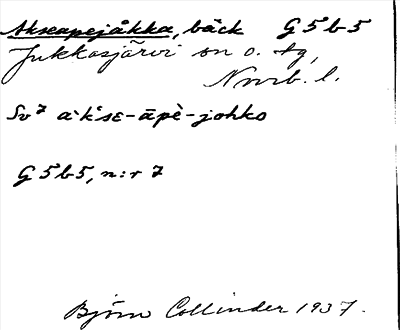 Akseapejåkka, bäck G5b5
Jukkasjärvi sn o. tg,
Nnrb. l.
Sv7 a·k'sɛ-āpè-johko
G5b5, n:r 7
Björn Collinder 1937.